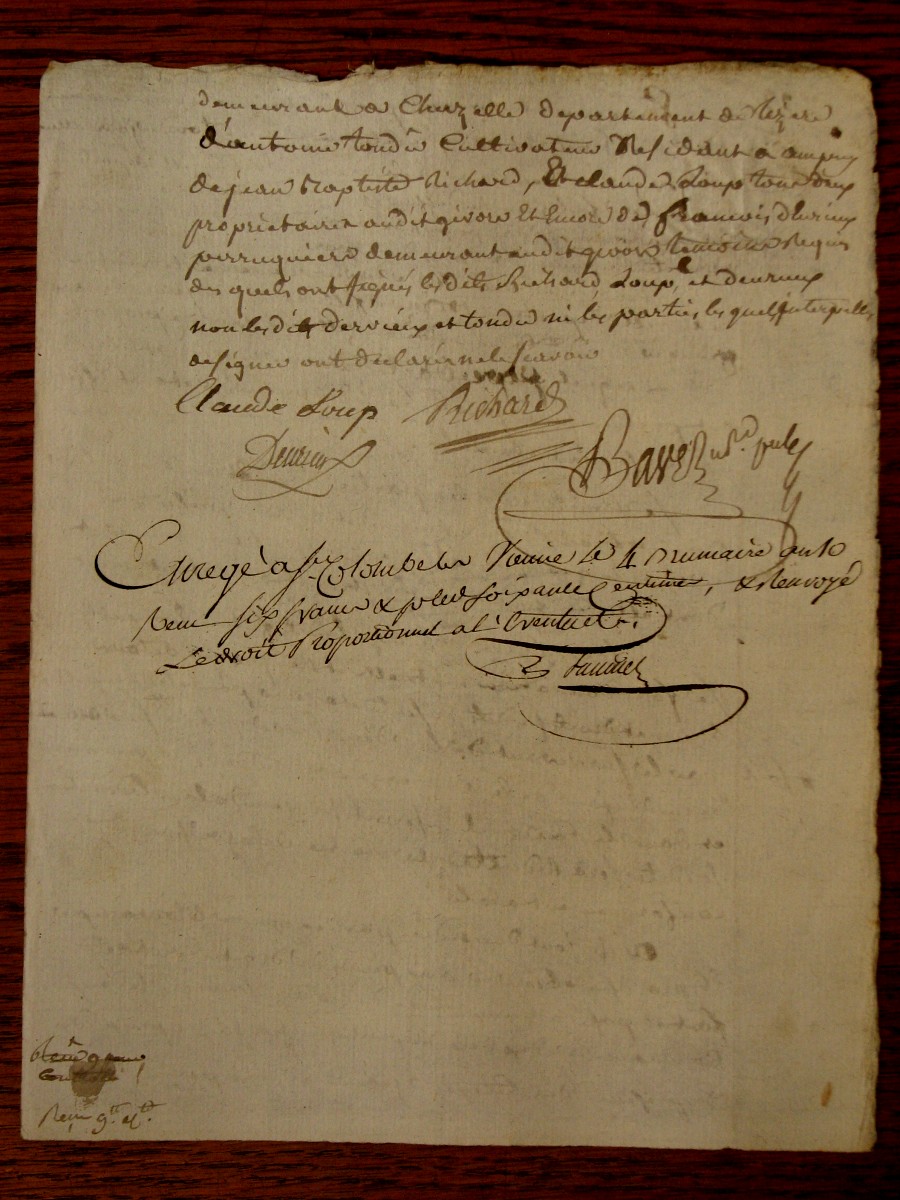 demeurant a Chuzelle departement de lizere
d'antoine tondu Cultivateur Residant a ampuy
de jean Baptiste Richard, Et claude Loup tous deux
proprietaires audit givors Et Encore de francois deurieux
perruquier demeurant audit givors temoins Requis
des quels ont signés les dits Richard, Loup, et deurieux
non les dits dervieux et tondu ni les parties les quels Interpellés
de signer ont declaré ne le scavoir
Claude Loup Richard
Deurieux
Bavet
Enregé a Ste Colombe les Vienne le 4 Brumaire an 10
Reçu six francs & soixante Centimes, & Renvoyé
Le droit Proportionnel a l'Eventuel.